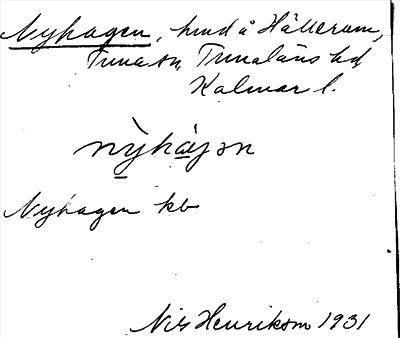 Nyhagen, hmd å Hälleram,
Tuna sn, Tunaläns hd
Kalmar l.
nỳha̲gən
Nyhagen kb
Nils Henrikson 1931